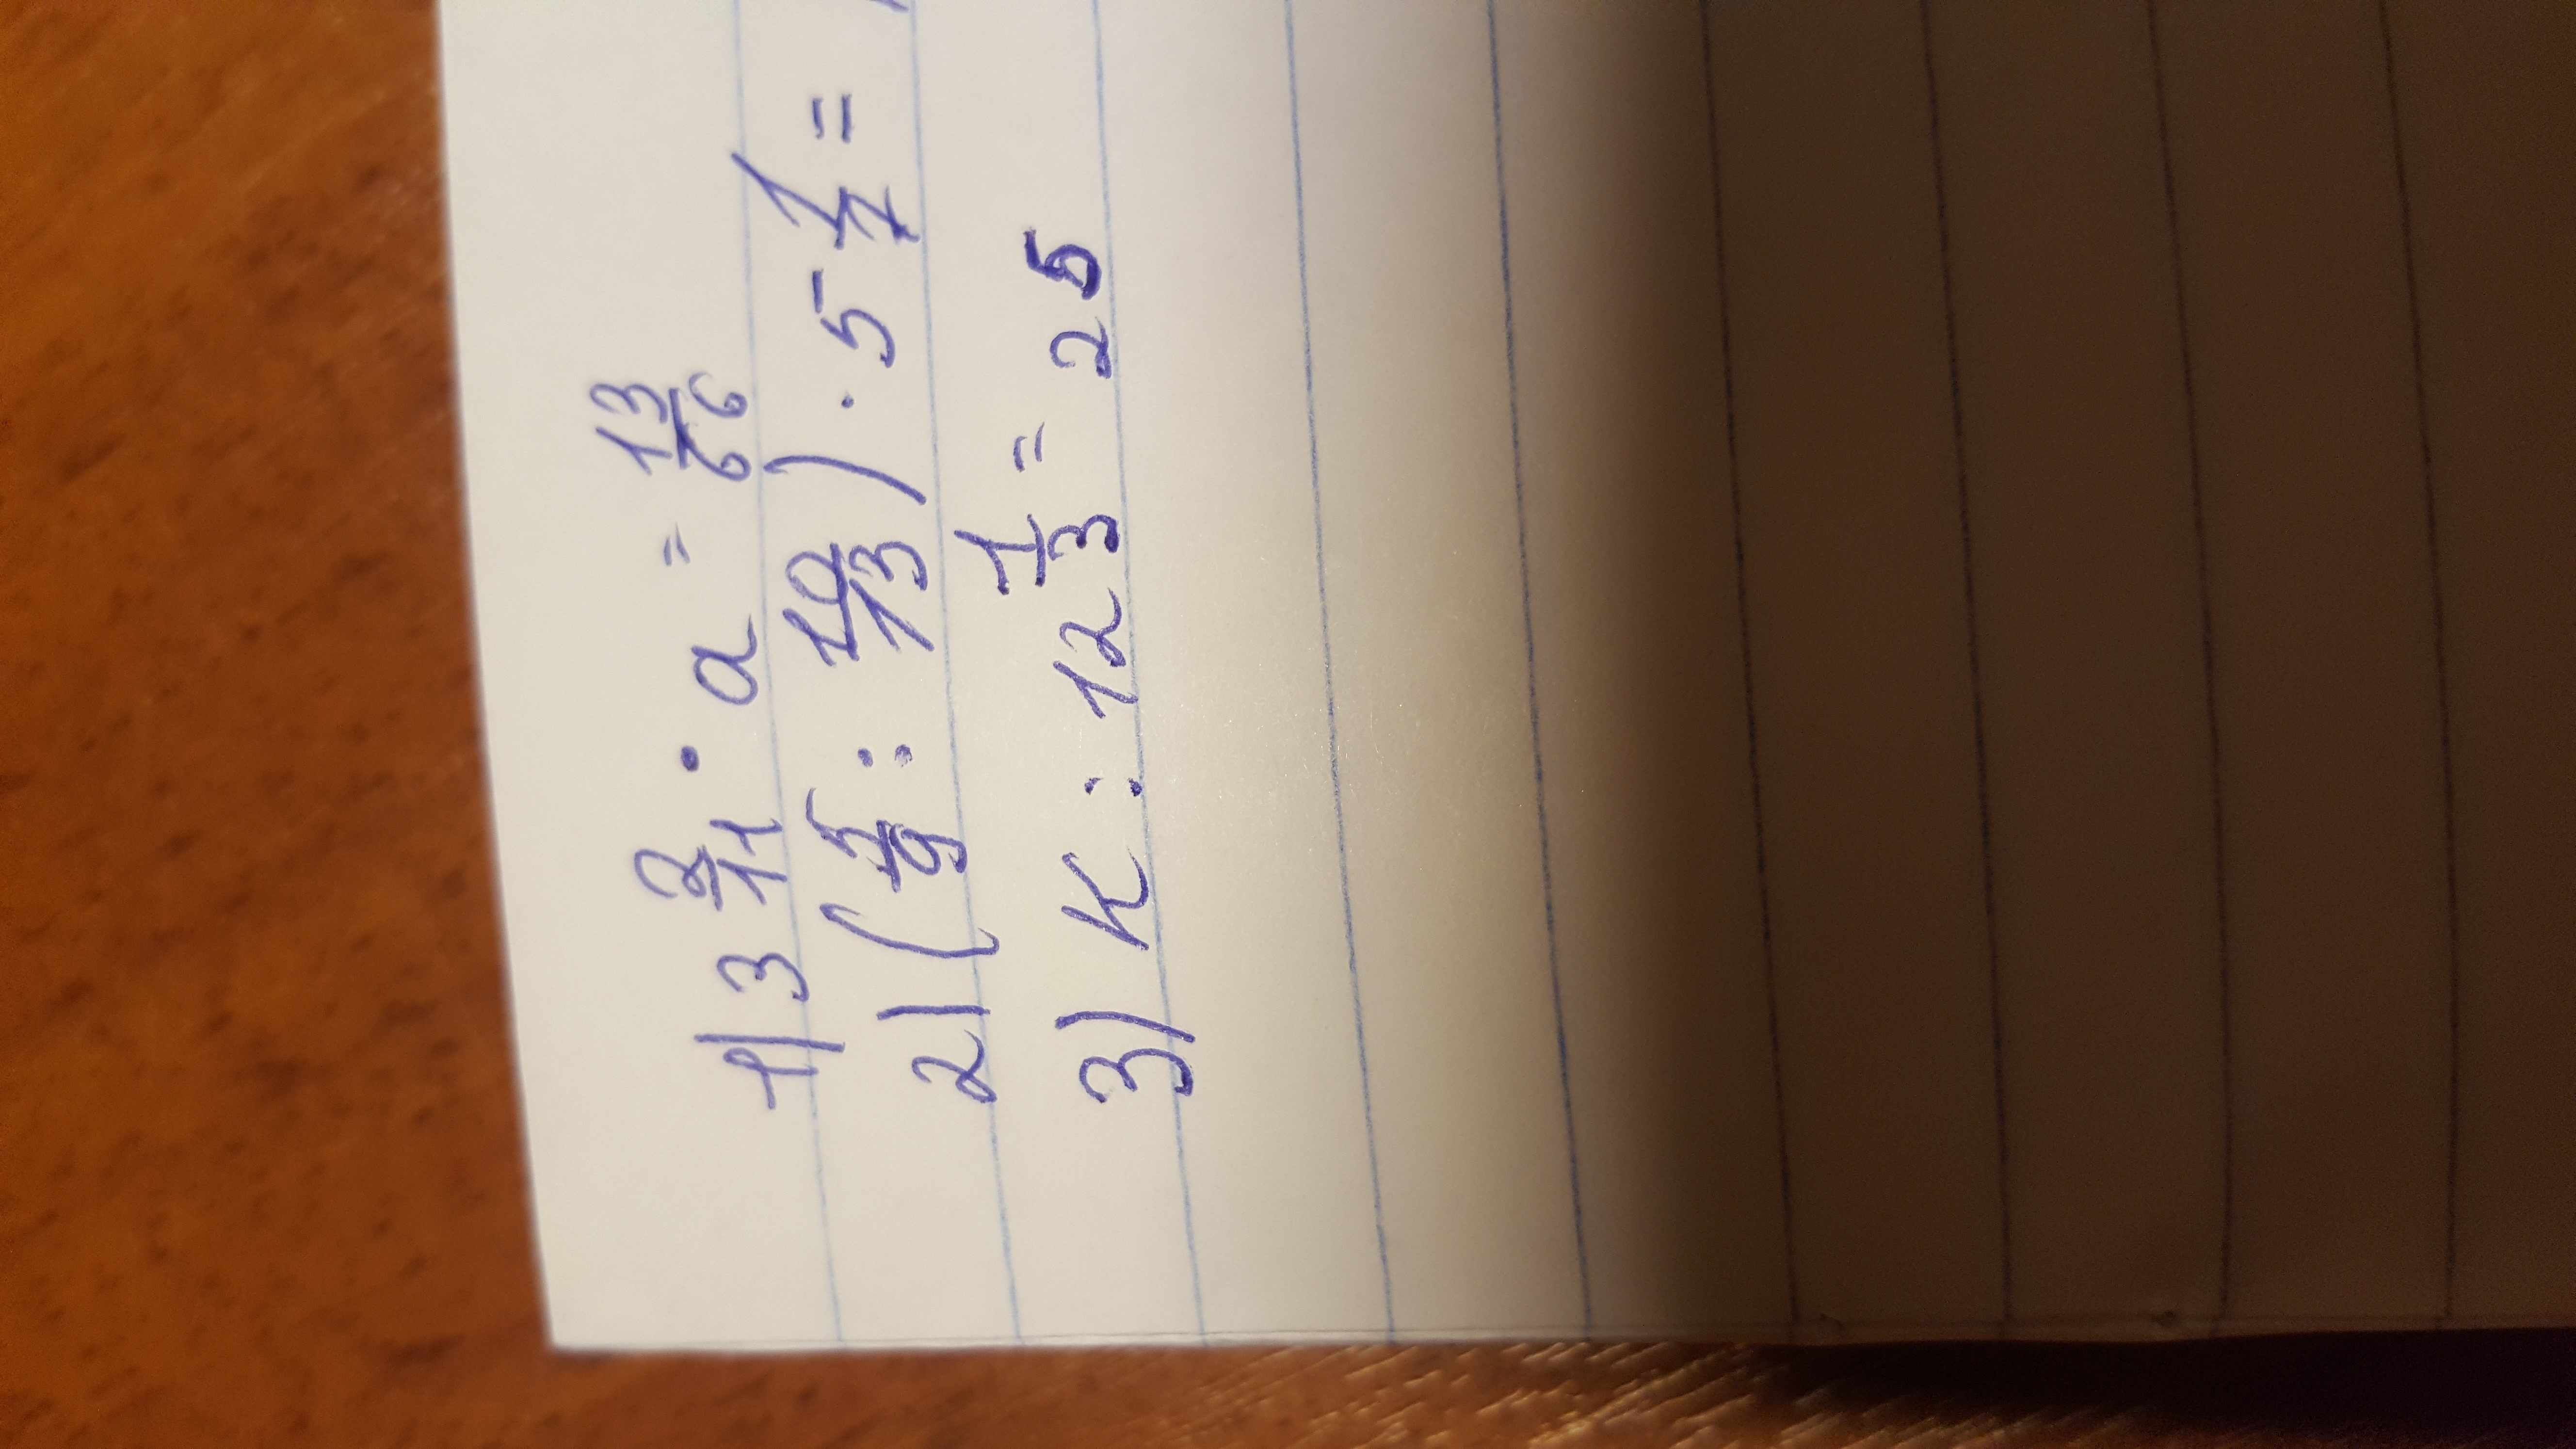 1) 3 2/11 · a = 13/66
2) (5/9 : 10/13) · 5 1/7 =
3) K : 12 1/3 = 25